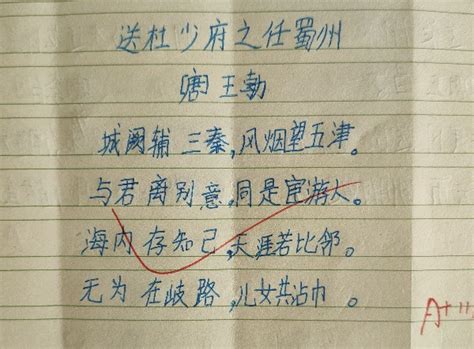 送杜少府之任蜀州
(唐)王勃
城阙辅三秦,风烟望五津。
与君离别意,同是宦游人。
海内存知己,天涯若比邻。
无为在歧路,儿女共沾巾。
A+